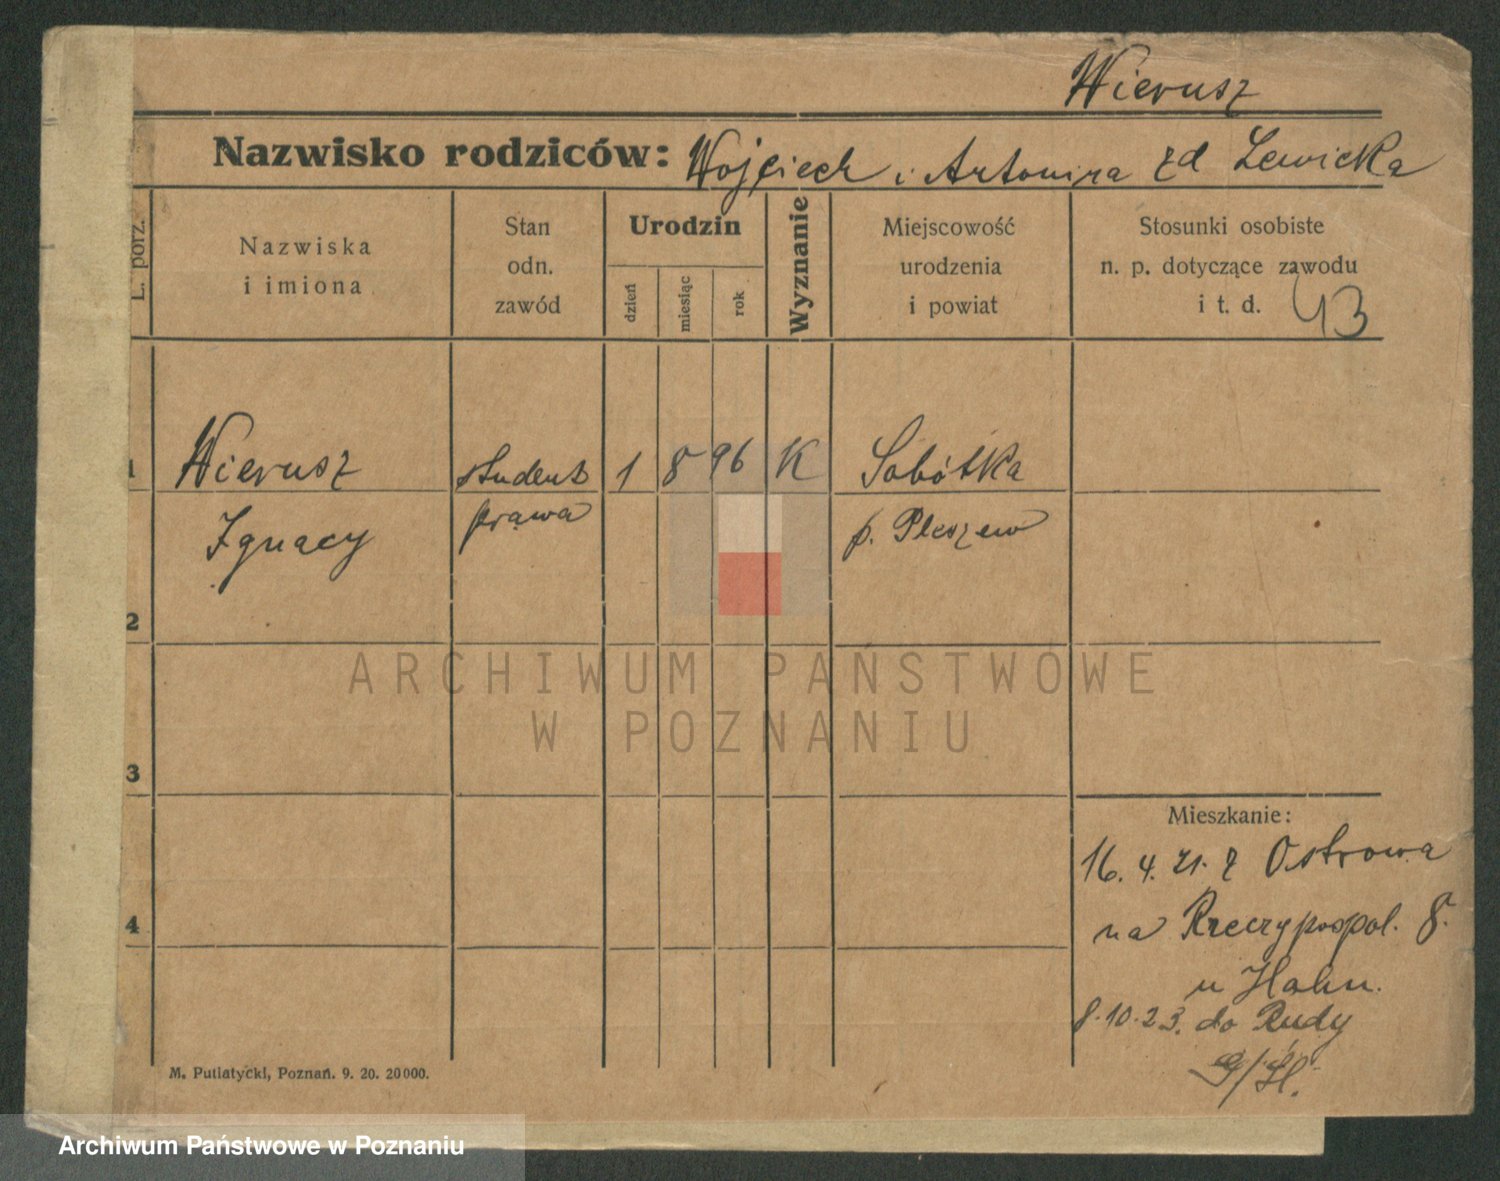 Wierusz
Nazwisko rodziców: Wojciech i Antonina zd Lewicka
L. porz.
Nazwiska
i imiona
Stan
odn.
zawód
Urodzin
dzień
miesiąc
rok
Wyznanie
Miejscowość
urodzenia
i powiat
Stosunki osobiste
n. p. dotyczące zawodu
i t. d. 43
1 Wierusz student 1 8 96 K Sobótka
Ignacy prawa p. Pleszew
2
ARCHIWUM PAŃSTWOWE
W POZNANIU
3
Mieszkanie:
16. 4. 21. z Ostrowa
4
na Rzeczypospol. 8.
u Hahn.
8.10.23. do Rudy
G/Śl.
M. Putiatycki, Poznań. 9. 20. 20000.
Archiwum Państwowe w Poznaniu